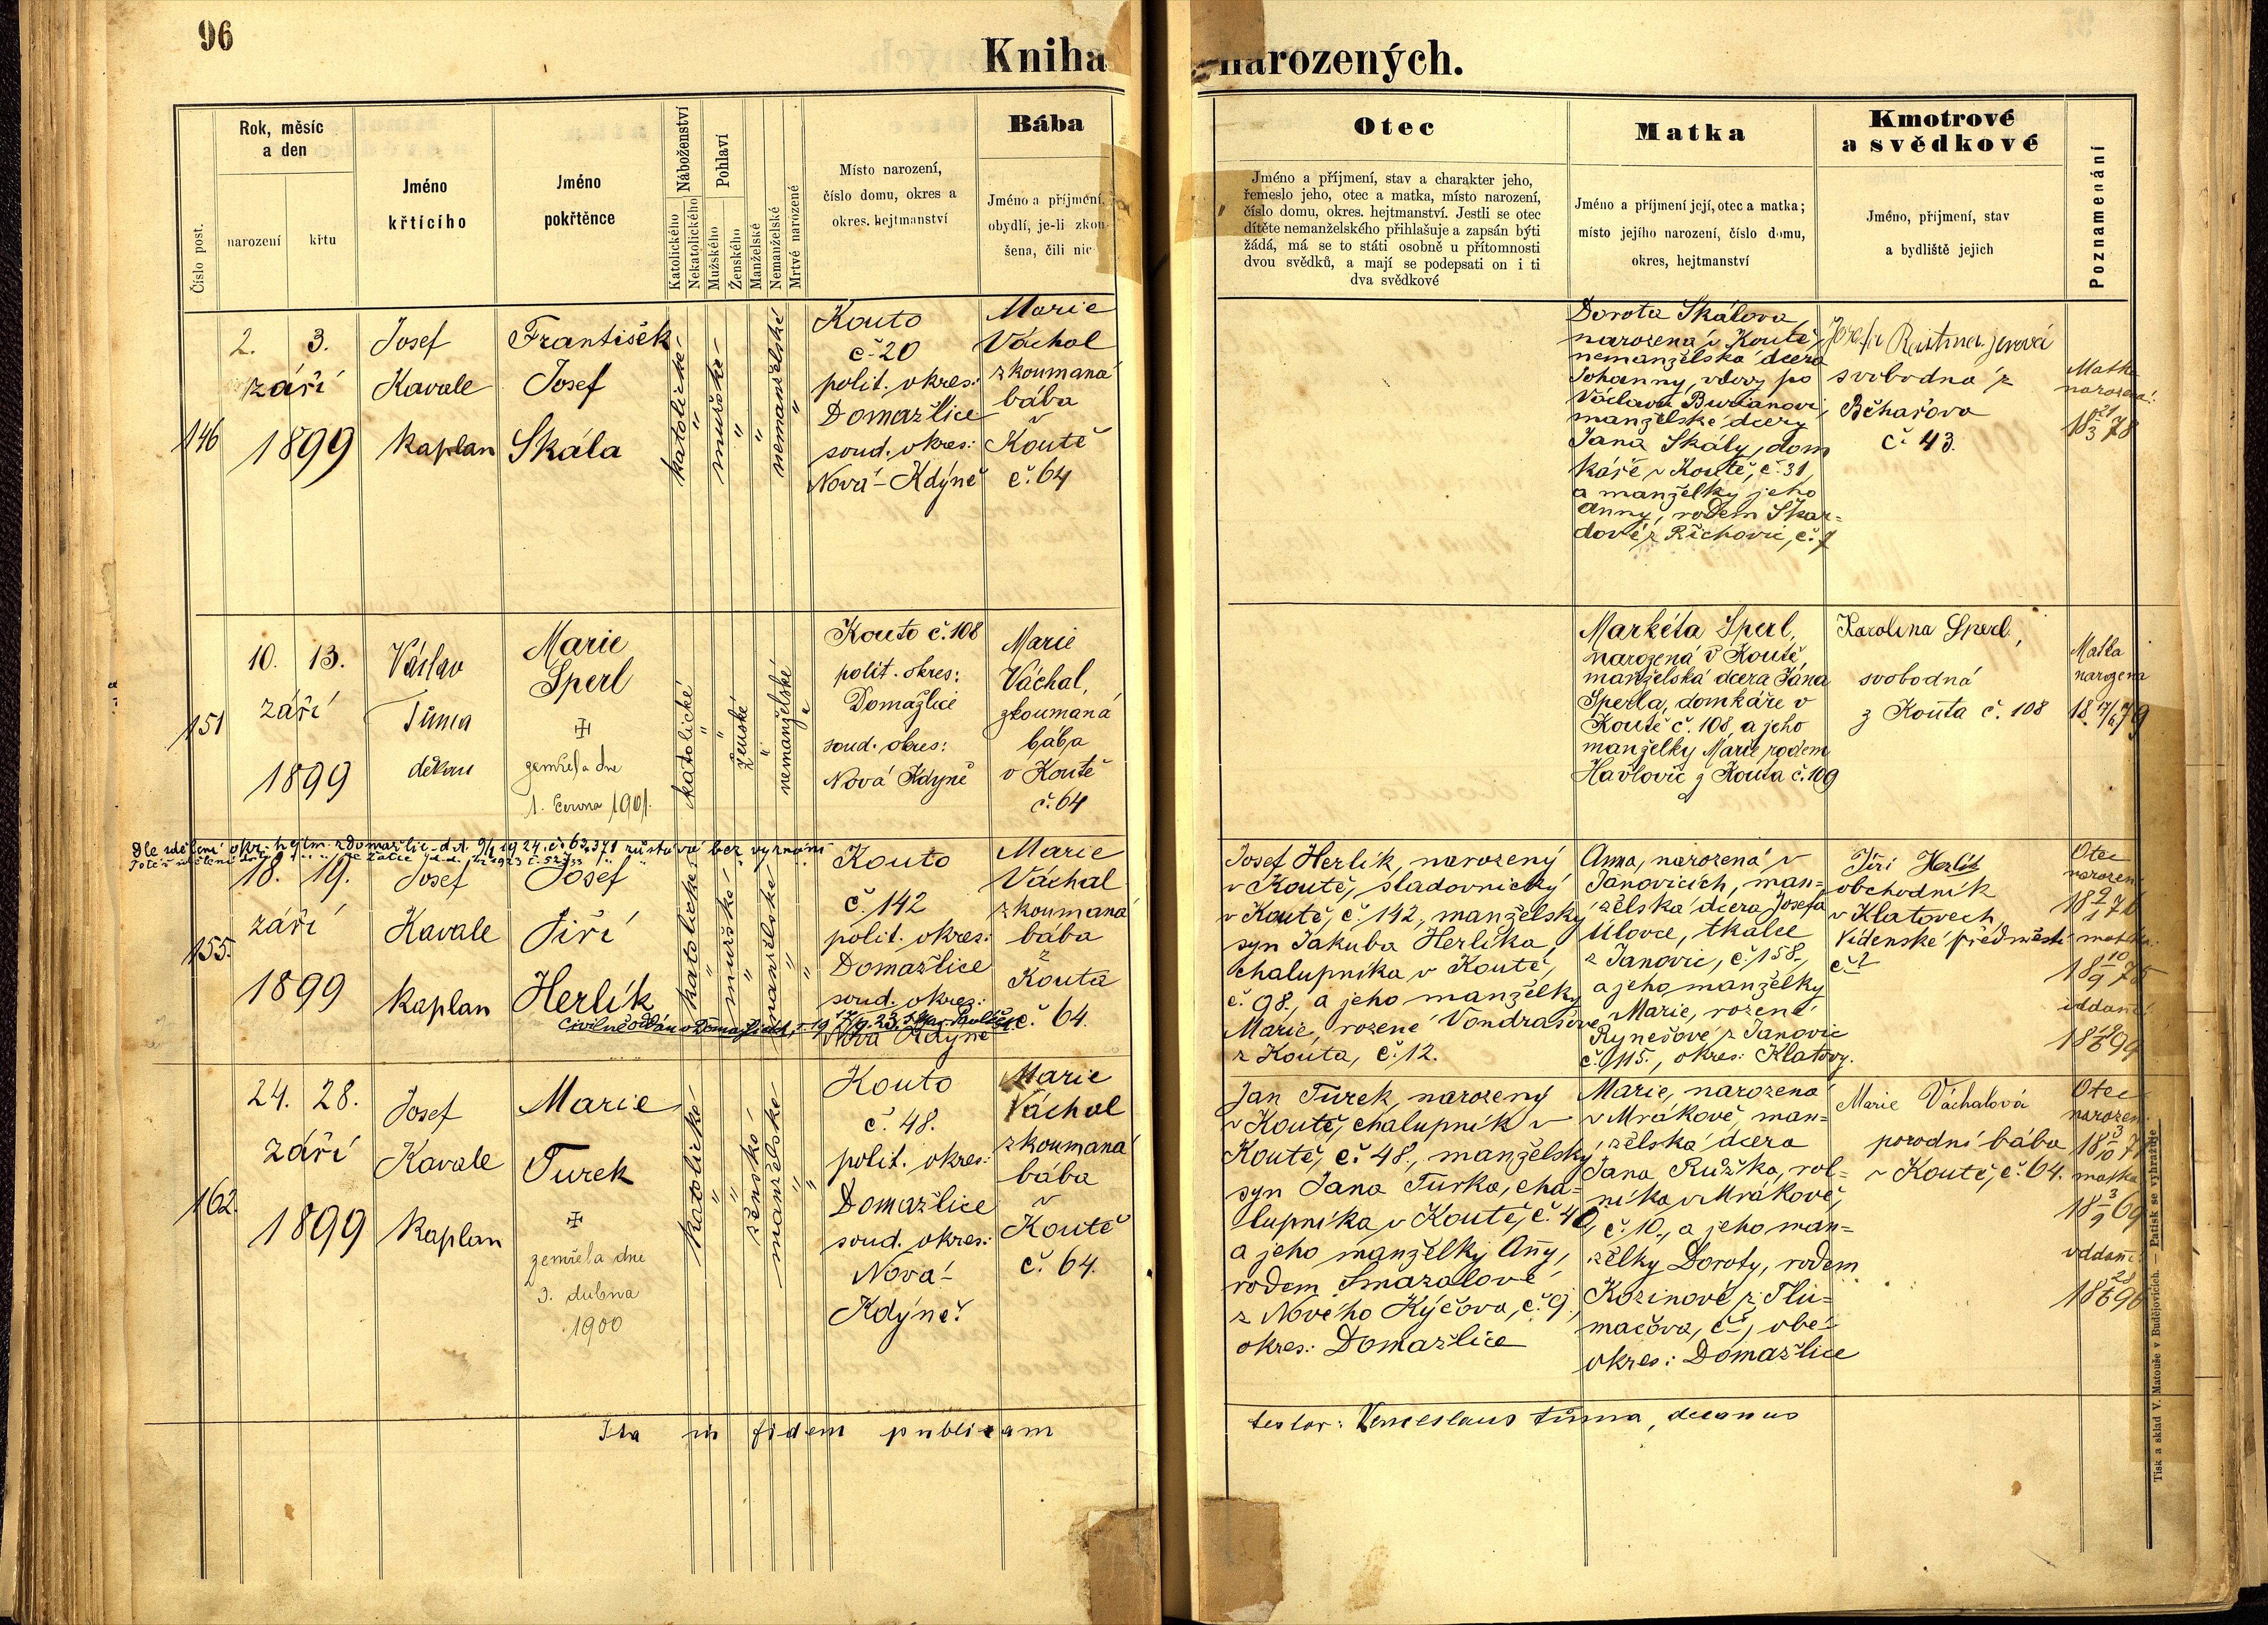 96
Kniha narozených.
Číslo post.
Rok, měsíc
a den
narození
křtu
Jméno
křtícího
Jméno
pokřtěnce
Náboženství
Katolického
Nekatolického
Pohlaví
Mužského
Ženského
Manželské
Nemanželské
Mrtvé narozené
Místo narození,
číslo domu, okres a
okres. hejtmanství
Bába
Jméno a příjmení,
obydlí, je-li zkou-
šena, čili nic
Otec
Jméno a příjmení, stav a charakter jeho,
řemeslo jeho, otec a matka, místo narození,
číslo domu, okres. hejtmanství. Jestli se otec
dítěte nemanželského přihlašuje a zapsán býti
žádá, má se to státi osobně u přítomnosti
dvou svědků, a mají se podepsati on i ti
dva svědkové
Matka
Jméno a příjmení její, otec a matka;
místo jejího narození, číslo domu,
okres, hejtmanství
Kmotrové
a svědkové
Jméno, příjmení, stav
a bydliště jejich
Poznamenání
146
2. 3.
září
1899
Josef
Kavale
kaplan
František
Josef
Skála
katolické
"
mužské
"
"
nemanželské
"
Kouto
č. 20
polit. okres:
Domažlice
soud. okres:
Nová-Kdýně
Marie
Váchal
zkoumaná
bába
v
Koutě
č. 64
Dorota Skálova,
narozená v Koutě,
nemanželská dcera
Johanny, vdovy po
Václavu Burianovi,
manželské dcery
Jana Skály, dom
káře v Koutě, č. 31,
a manželky jeho
Anny, rodem Skar-
dové z Říchovic, č. 7
svobodná z
Běhařova
č. 43.
Matka
narozená:
18 21/3 78
151
10. 13.
září
1899
Václav
Tůma
děkan
Marie
Sperl
zemřela dne
1. června 1901.
katolické
"
"
ženské
"
nemanželské
Kouto č. 108
polit. okres:
Domažlice
soud. okres:
Nová Kdyně
Marie
Váchal,
zkoumaná
bába
v Koutě
č. 64
Markéta Sperl,
narozená v Koutě,
manželská dcera Jana
Sperla, domkáře v
Koutě č. 108, a jeho
manželky Marie rodem
Havlovic z Kouta č. 109
Karolina Sperl,
svobodná
z Kouta č. 108
Matka
narozena
18 17/6 79
Dle sdělení okr. hejtm. z Domažlic d.d. 9/1 1924, č. 63.371 zůstává bez vyznání
155.
18. 19.
září
1899
Josef
Kavale
kaplan
Josef
Jiří
Herlík
Civilně oddán v Domažlicích
katolické
"
mužské
"
manželské
"
"
Kouto
č. 142
polit. okres:
Domažlice
soud. okres:
Nová Kdyně
Marie
Váchal
zkoumaná
bába
z
Kouta
č. 64.
Josef Herlík, narozený
v Koutě, sladovnický
v Koutě, č. 142., manželský
syn Jakuba Herlíka,
chalupníka v Koutě,
č. 98., a jeho manželky
Marie, rozené Vondrašové
z Kouta, č. 12.
Anna, narozená v
Janovicích, man-
želská dcera Josefa
Úlovce, tkalce
z Janovic, č. 158.,
a jeho manželky
Marie, rozené
Rynešové z Janovic
č. 115., okres: Klatovy.
Jiří Herlík
obchodník
v Klatovech,
Vídenské předměstí
č. 2
Otec
narozen:
matka:
18 10/9 75
oddaní:
162.
24. 28.
září
1899
Josef
Kavale
kaplan
Marie
Turek
zemřela dne
3. dubna
1900
katolické
"
"
ženské
manželské
"
"
Kouto
č. 48.
polit. okres:
Domažlice
soud. okres:
Nová-
Kdýně.
Marie
Váchal
zkoumaná
bába
v
Koutě
č. 64.
Jan Turek, narozený
v Koutě, chalupník v
Koutě, č. 48., manželský
syn Jana Turka, cha-
lupníka v Koutě, č. 48,
a jeho manželky Anny,
rodem Smazalové
z Nového Kýčova, č. 9.,
okres: Domažlice
Marie, narozená
v Mrákově, man-
želská dcera
Jana Růžka, rol-
níka v Mrákově,
č. 10., a jeho man-
želky Doroty, rodem
Kozinové z Tlu-
mačova, č. -, obě-
okres: Domažlice
Marie Váchalová
porodní bába
v Koutě, č. 64.
Otec
narozen:
matka
18 3/9 69
oddaní:
18 28/6 96
Ita in fidem publicam
testor: Venceslaus Tůma, decanus
Tisk a sklad V. Matouše v Budějovicích. — Patisk se vyhražuje